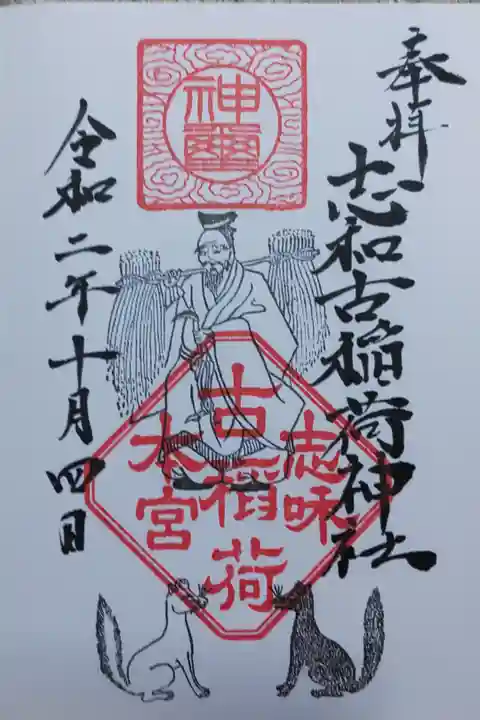 奉拝
志和古稲荷神社
神璽
志味
古稲荷
本宮
令和二年十月四日